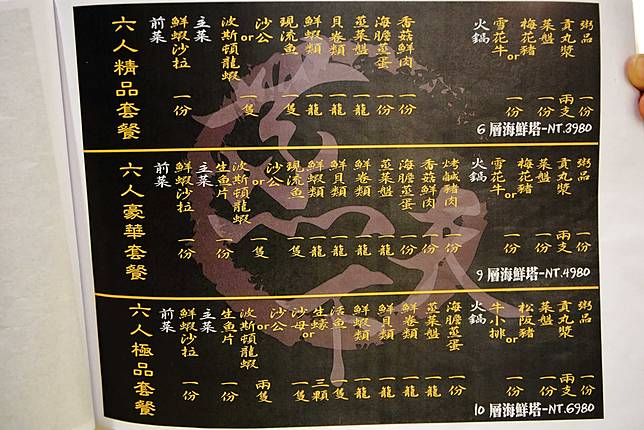 六人精品套餐
前菜
鮮蝦沙拉 一份
主菜
波斯頓龍蝦
or
沙公 一隻
現流魚 一隻
鮮蝦類 一龍
貝卷類 一龍
蒸菜盤 一龍
海膽蒸蛋 一份
香菇鮮肉 一份
火鍋
雪花牛
or
梅花豬 一份
菜盤 一份
貢丸漿 兩支
粥品 一份
6層海鮮塔-NT.3980
六人豪華套餐
前菜
鮮蝦沙拉 一份
主菜
生魚片 一份
波斯頓龍蝦
or
沙公 一隻
現流魚 一隻
鮮蝦類 一龍
鮮貝類 一龍
鮮卷類 一龍
蒸菜盤 一龍
海膽蒸蛋 一份
香菇鮮肉 一份
烤鹹豬肉 一份
火鍋
雪花牛
or
梅花豬 一份
菜盤 一份
貢丸漿 兩支
粥品 一份
9層海鮮塔-NT.4980
六人極品套餐
前菜
鮮蝦沙拉 一份
主菜
生魚片 一份
波斯頓龍蝦
or
沙公 兩隻
沙母 一隻
or
生蠔 三顆
活魚 一隻
鮮蝦類 一龍
鮮貝類 一龍
鮮卷類 一龍
蒸菜盤 一龍
海膽蒸蛋 一份
火鍋
牛小排
or
松阪豬 一份
菜盤 一份
貢丸漿 兩支
粥品 一份
10層海鮮塔-NT.6980